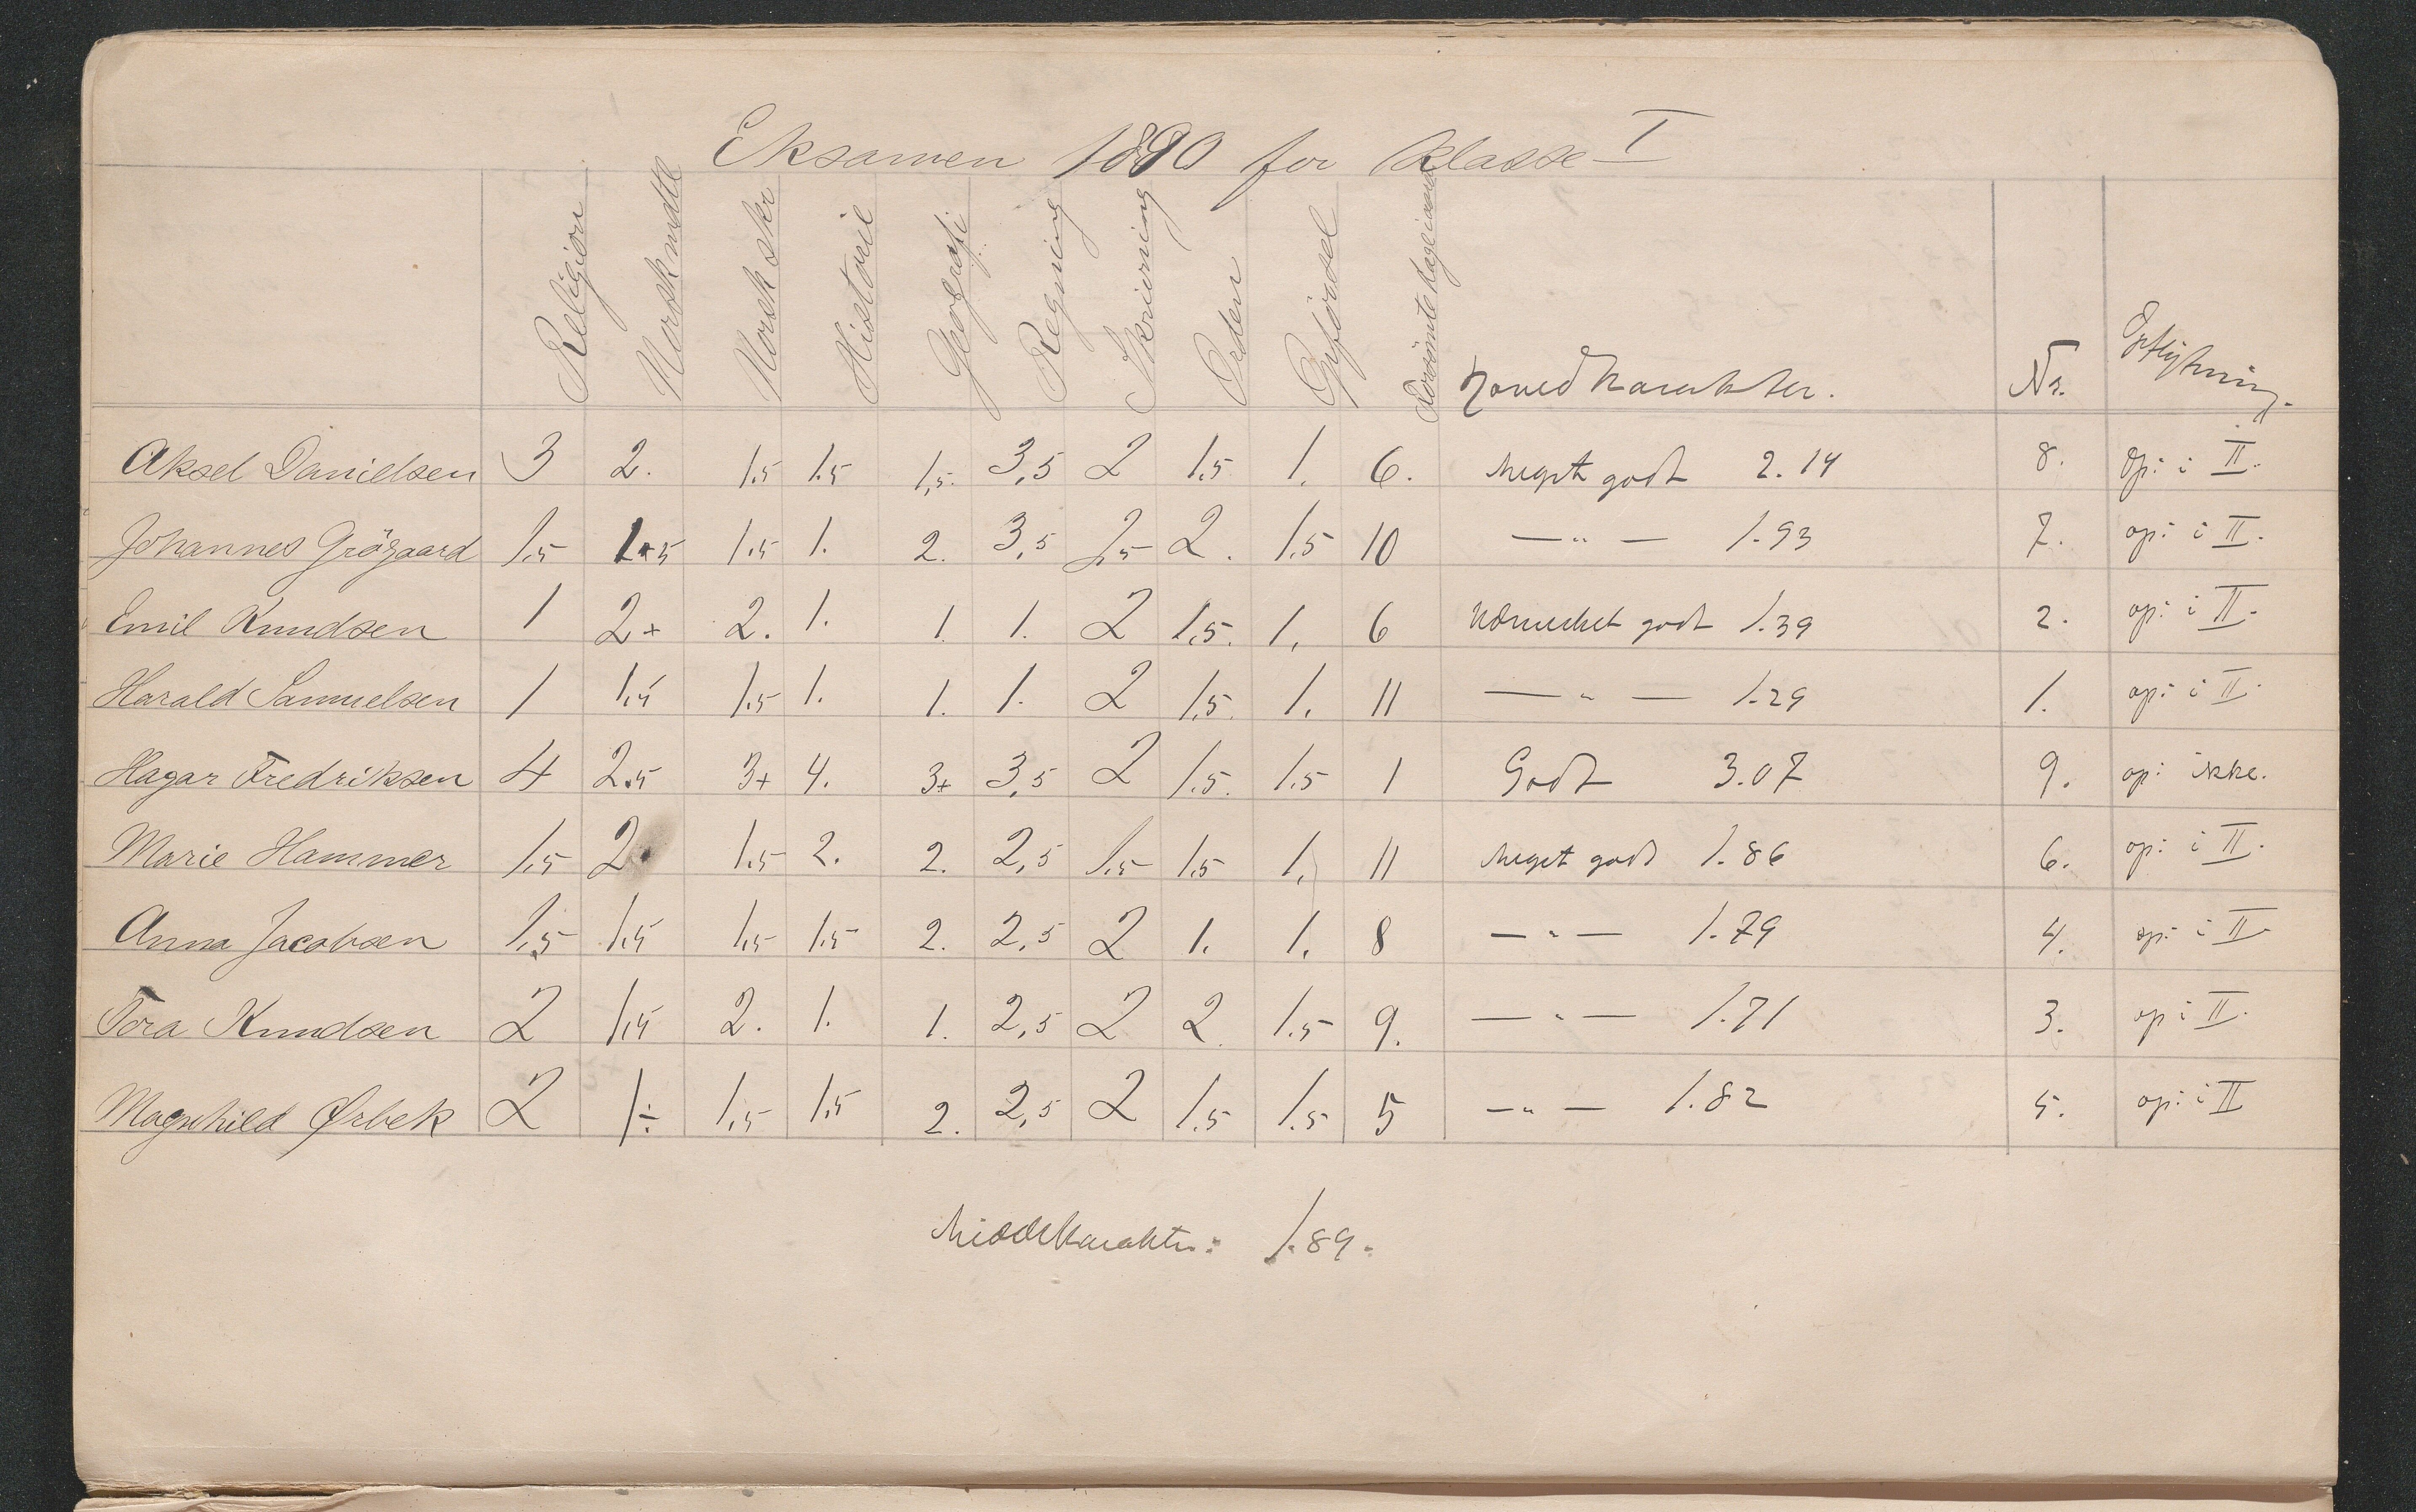 Eksamen 1890 for klasse I
Religion Norsk mndtl Norsk skr Historie Geografi Regning Skrivning Orden Opförsel Forsömte dage Hovedkarakter. Nr. Opflytning.
Aksel Danielsen 3 2. 1.5 1.5 1,5. 3,5 2 1.5 1. 6. Meget godt 2.14 8. Op: i II.
Johannes Grögaard 1.5 1.5 1.5 1. 2. 3,5 2,5 2. 1.5 10 — " — 1.93 7. op: i II.
Emil Knudsen 1 2+ 2. 1. 1. 1. 2 1.5. 1. 6 Udmerket godt 1.39 2. op: i II.
Harald Samuelsen 1 1.5 1.5 1. 1. 1. 2 1.5. 1. 11 — " — 1.29 1. op: i II.
Hagar Fredriksen 4 2.5 3+ 4. 3+ 3,5 2 1.5. 1.5 1 Godt 3.07 9. op: ikke.
Marie Hammer 1.5 2. 1.5 2. 2. 2,5 1.5 1.5 1. 11 Meget godt 1.86 6. op: i II.
Anna Jacobsen 1.5 1.5 1.5 1.5 2. 2,5 2 1. 1. 8 — " — 1.79 4. op: i II
Tora Knudsen 2 1.5 2. 1. 1. 2,5 2 2. 1.5 9. — " — 1.71 3. op i II.
Magnhild Ørbek 2 1÷ 1,5 1.5 2. 2,5 2 1.5 1.5 5 — " — 1.82 5. op: i II
Middelkarakter: 1.89.